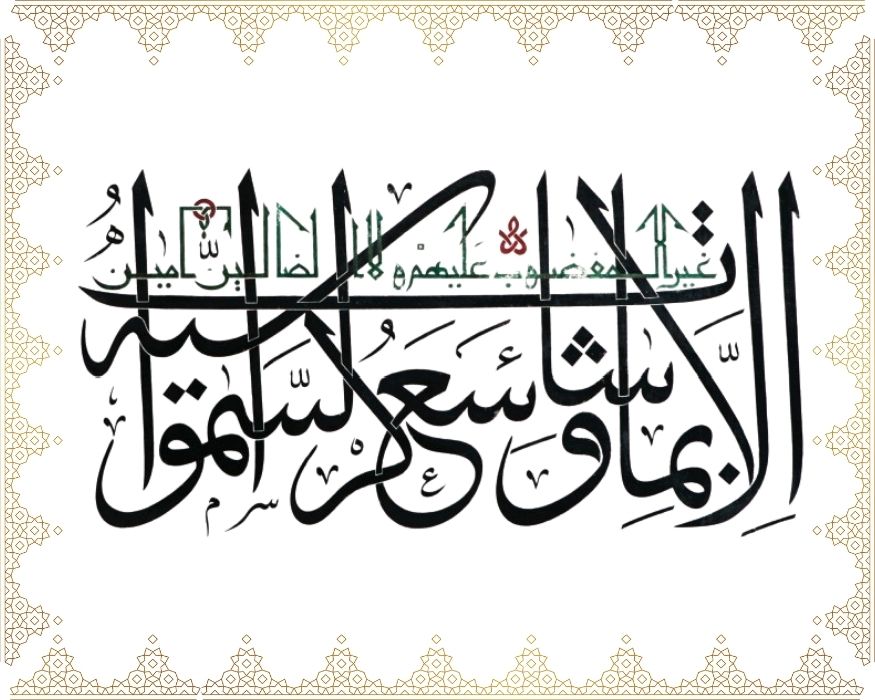 غير المغضوب عليهم ولا الضالين آمين
إلا بما شاء وسع كرسيه السموات